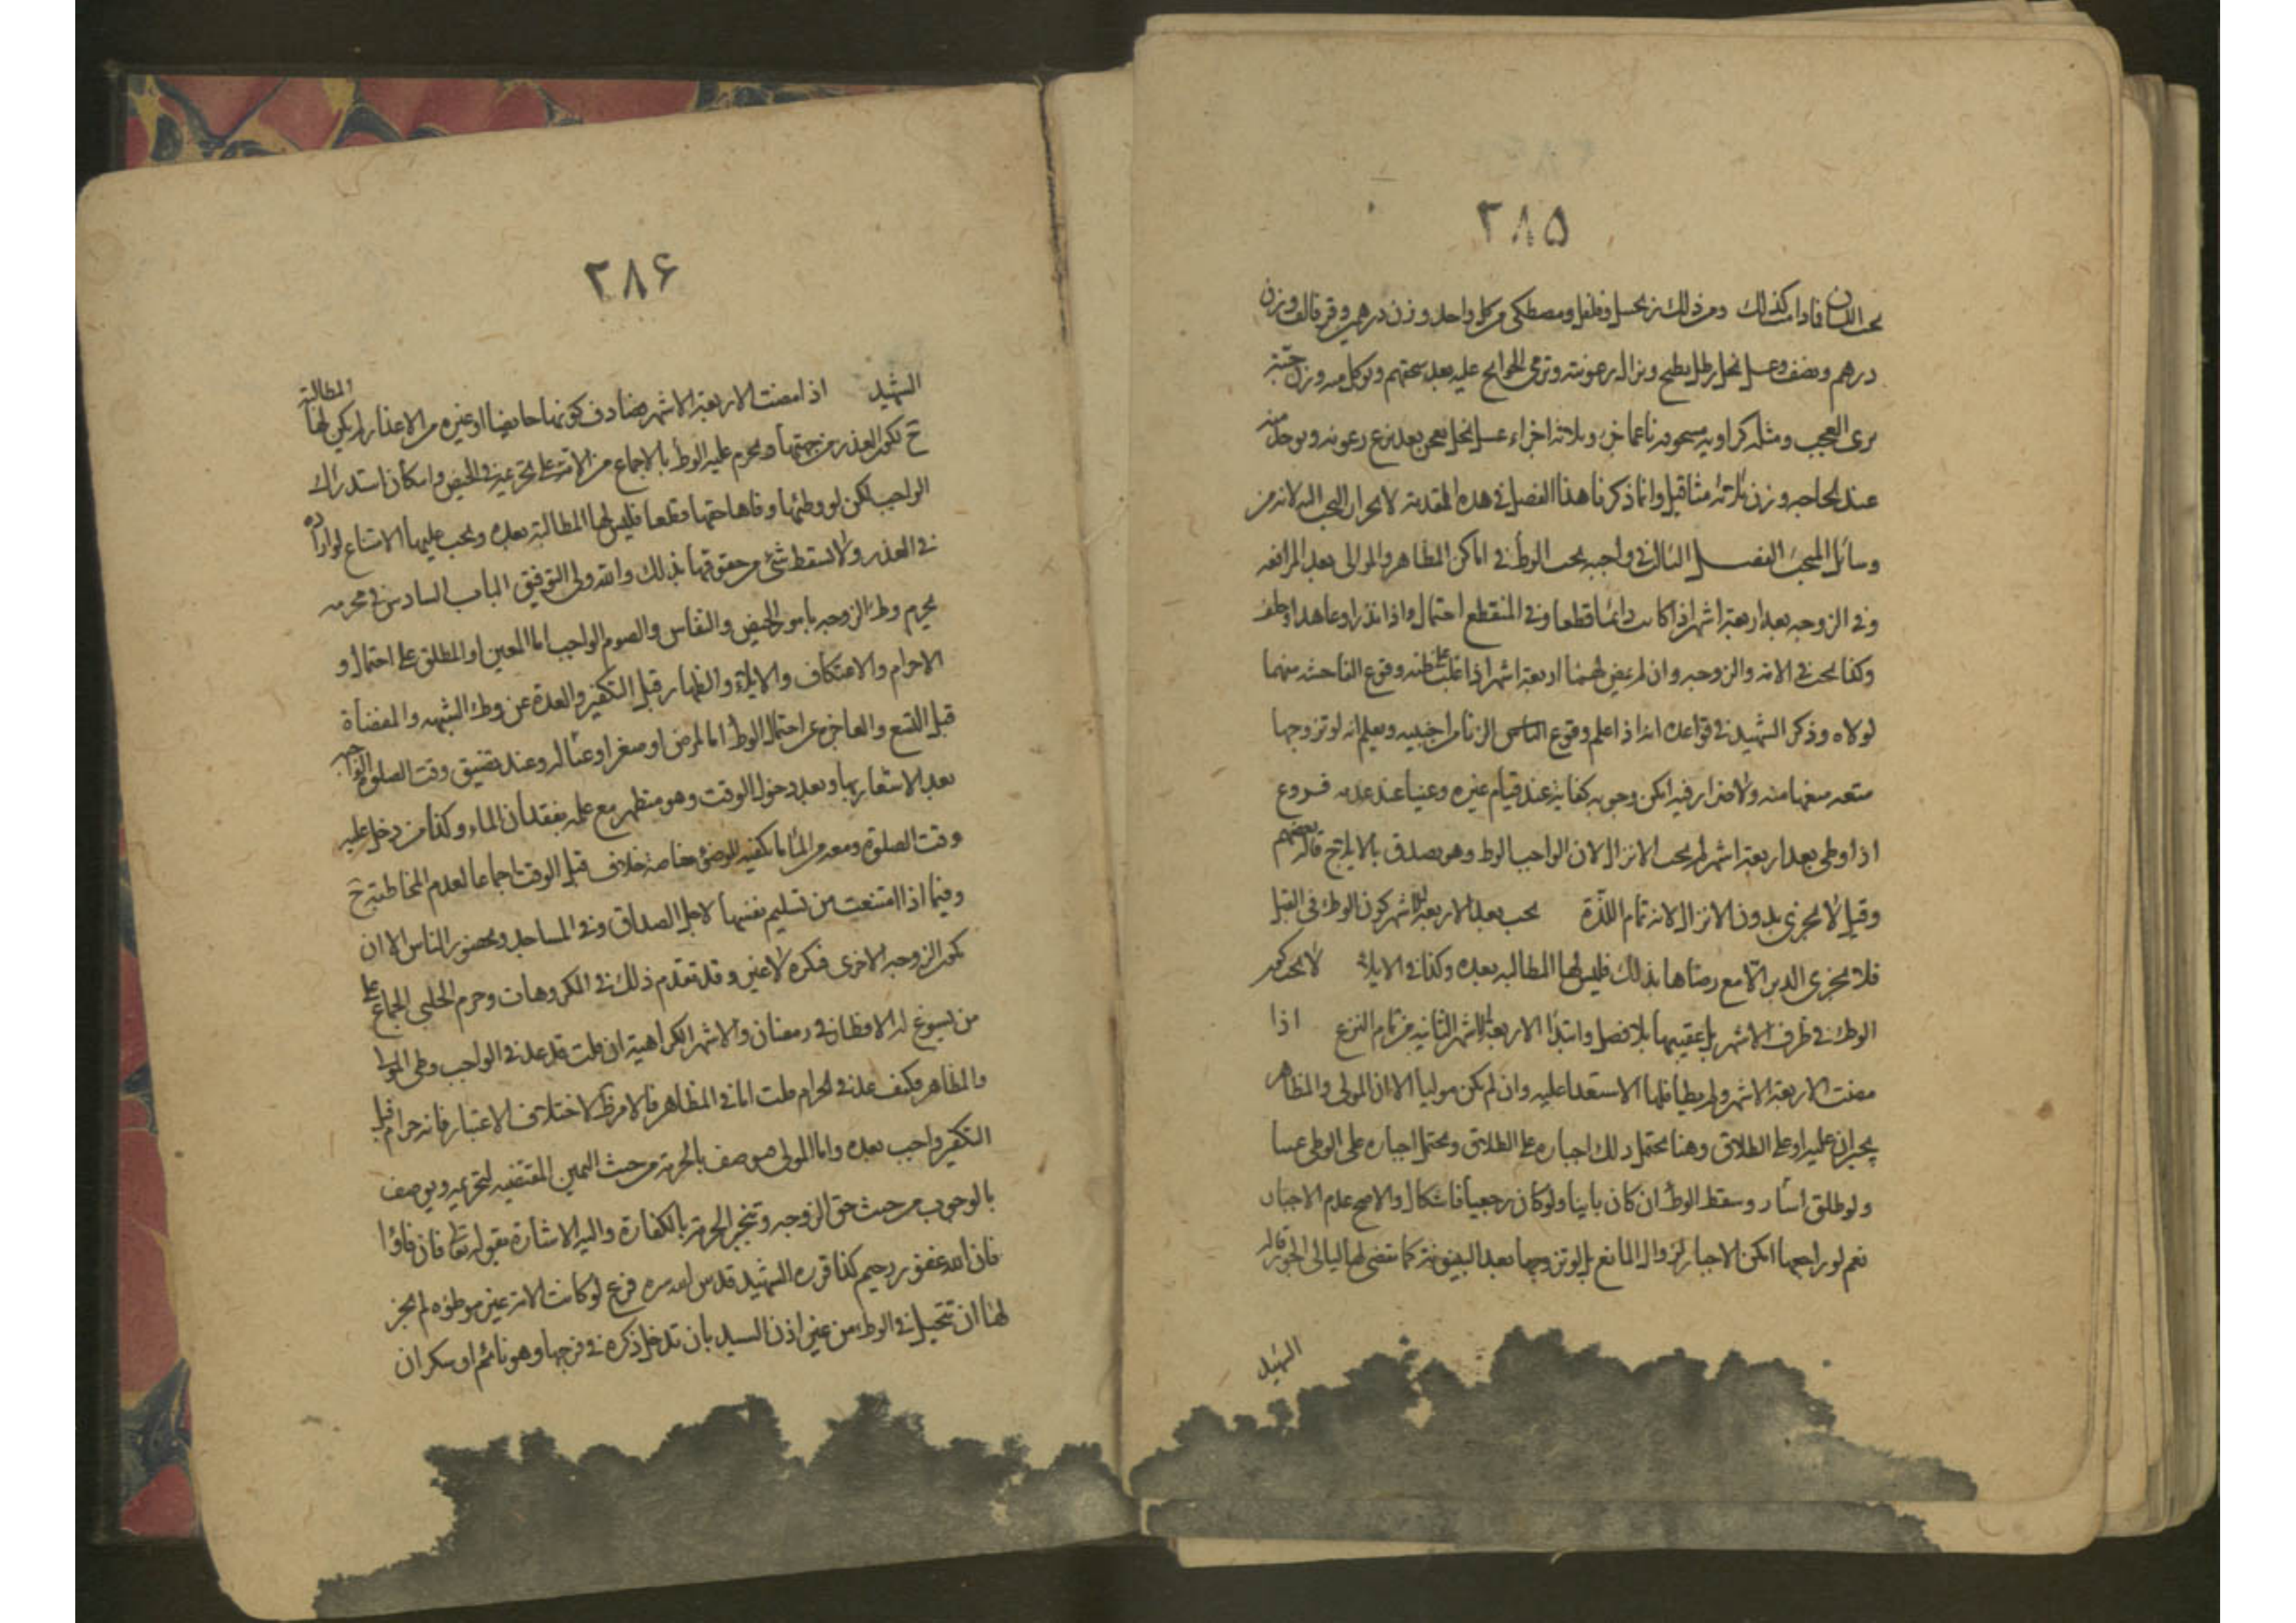 ٢٨۵
تحت اللسان فادا كذلك ومن ذلك زنجبيل وفلفل ومصطكي من كل واحد وزن درهم وقرفالف وزن
درهم ونصف وعسل نحل رطل يطبخ ويزال رعونته وترمى الحوايج عليه بعد سحقهم ويوكل منه وزن حبّة
يرى العجب ومثله كراويه مسحوقه ناعما جزء وثلاثه اجزاء عسل نحل يعجن بعد نزع رعوته ويوخذ منه
عند الحاجه وزن ثلاثه مثاقيل وانما ذكرنا هذا الفصل في هذه المقدمة لانجرار البحث اليه لانه من
وسائل المبحث الفصل الثالث في واجبه يجب الوطؤ في اماكن المظاهر والمولى بعد المرافعه
وفي الزوجه بعد اربعة اشهر اذا كانت دائما قطعا وفي المنقطع احتمال واذا نذر او عاهد او حلف
وكذا يجب في الامة والزوجه وان لم يمض لهما اربعة اشهر اذا غلب على ظنه وقوع الفاحشه منهما
لولاه وذكر الشهيد في قواعده انه اذا علم وقوع الناس الزنا من اجنبيه ويعلم انه لو تزوجها
متعه منعها منه ولا ضرار فيه امكن وجوبه كفاية عند قيام غيره وعينا عند عدمه فروع
اذا وطى بعد اربعة اشهر لم يجب الانزال لان الواجب الوط وهو يصدق بالايلاج قاله بعضهم
وقيل لا يجزى بدون الانزال لانه تمام اللذة يجب بعد الاربعة الاشهر كون الوطء في القبل
فلا يجزى الدبر الّا مع رضاها بذلك فليس لها المطالبه بعده وكذا في الايلاء لا يجب كون
الوطء في طرف الاشهر بل عقيبها بلا فصل وابتدا الاربعة الاشهر الثانيه من تمام النزع اذا
مضت الاربعة الاشهر ولم يطأ فلها الاستعدا عليه وان لم يكن موليا الا ان المولى والمظاهر
يجبران عليه او على الطلاق وهنا يحتمل ذلك اجباره على الطلاق ويحتمل اجباره على الوطى عينا
ولو طلق اسار وسقط الوطؤ ان كان باينا ولو كان رجعيا فاشكال والاصح عدم الاجبار
نعم لو راجعها امكن الاجبار لزوال المانع بل لو تزوجها بعد البينونة كما تقضى لها ليالى الجور قاله
الشهيد
٢٨۶
الشهيد اذا مضت الاربعة الاشهر فصادف كونها حايضا او غيره من الاعذار لم يكن لها المطالبة
ح لكون العذر من جهتها ويحرم عليه الوطؤ بالاجماع من الامة على تحريمه في الحيض وامكان استدراك
الواجب لكن لو وطئها وفاها حقها قطعا فليس لها المطالبة بعده ويجب عليها الامتناع لو اراده
في العذر ولا يسقط شئ من حقوقها بذلك والله ولى التوفيق الباب السادس في محرمه
يحرم وطء الزوجه بامور الحيض والنفاس والصوم الواجب اما المعين او المطلق على احتمال و
الاحرام والاعتكاف والايلاء والظهار قبل التكفير والعدة عن وطء الشبهه والمفضاة
قبل التسع والعاجزه عن احتمال الوطؤ اما لمرض او صغر او عبالة وعند تضييق وقت الصلوة الواجبه
بعد الاستغار بها وبعد دخول الوقت وهو متطهر مع علمه بفقدان الماء وكذا من دخل عليه
وقت الصلوة ومعه من الماء ما يكفيه للوضوء خاصة خلاف قبل الوقت اجماعا لعدم المخاطبة ح
وفيما اذا امتنعت من تسليم نفسها لاجل الصداق وفي المساجد وبحضور الناس الا ان
تكون الزوجه الاخرى فيكره لا غير وقد تقدم ذلك في المكروهات وحرم الحلبي الجماع على
من يسوغ له الافطار في رمضان والاشهر الكراهية ان قلت قد عد في الواجب وطى المولى
والمظاهر فكيف عد في الحرام قلت اما في المظاهر فالامر ظ لاختلاف الاعتبار فانه حرام قبل
التكفير واجب بعده واما المولى فيوصف بالحرمة من حيث اليمين المقتضيه لتحريمه ويوصف
بالوجوب من حيث حق الزوجه وتنجبر الحرمة بالكفارة واليه الاشارة بقوله تعالى فان فاؤا
فان الله غفور رحيم كذا قرره الشهيد قدس الله سره فرع لو كانت الامة غير موطؤه لم يجز
لها ان تتحيل في الوطء من غير اذن السيد بان تدخل ذكره في فرجها وهو نائم او سكران